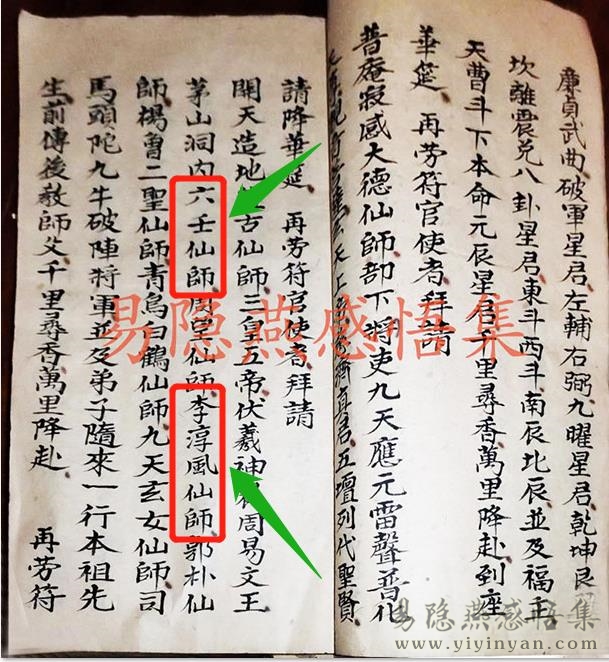 廉貞武曲破軍星君左輔右弼九曜星君乾坤艮
坎離震兌八卦星君東斗西斗南辰北辰並及福主
天曹斗下本命元辰星君千里尋香萬里降赴到座
華筵　再劳符官使者拜請
普庵寂感大德仙師部下將吏九天應元雷聲普化
天上 真君五壇列代聖賢
請降華筵　再劳符官使者拜請
開天造地 古仙師三皇五帝伏羲神 周易文王
茅山洞内六壬仙師 仙師李淳風仙師郭朴仙
師楊曾二聖仙師青烏白鶴仙師九天玄女仙師司
馬頭陀九牛破陣將軍並及弟子隨來一行本祖先
生前傳後教師父千里尋香萬里降赴　再劳符
易隐燕感悟集
易隐燕感悟集
www.yiyinyan.com